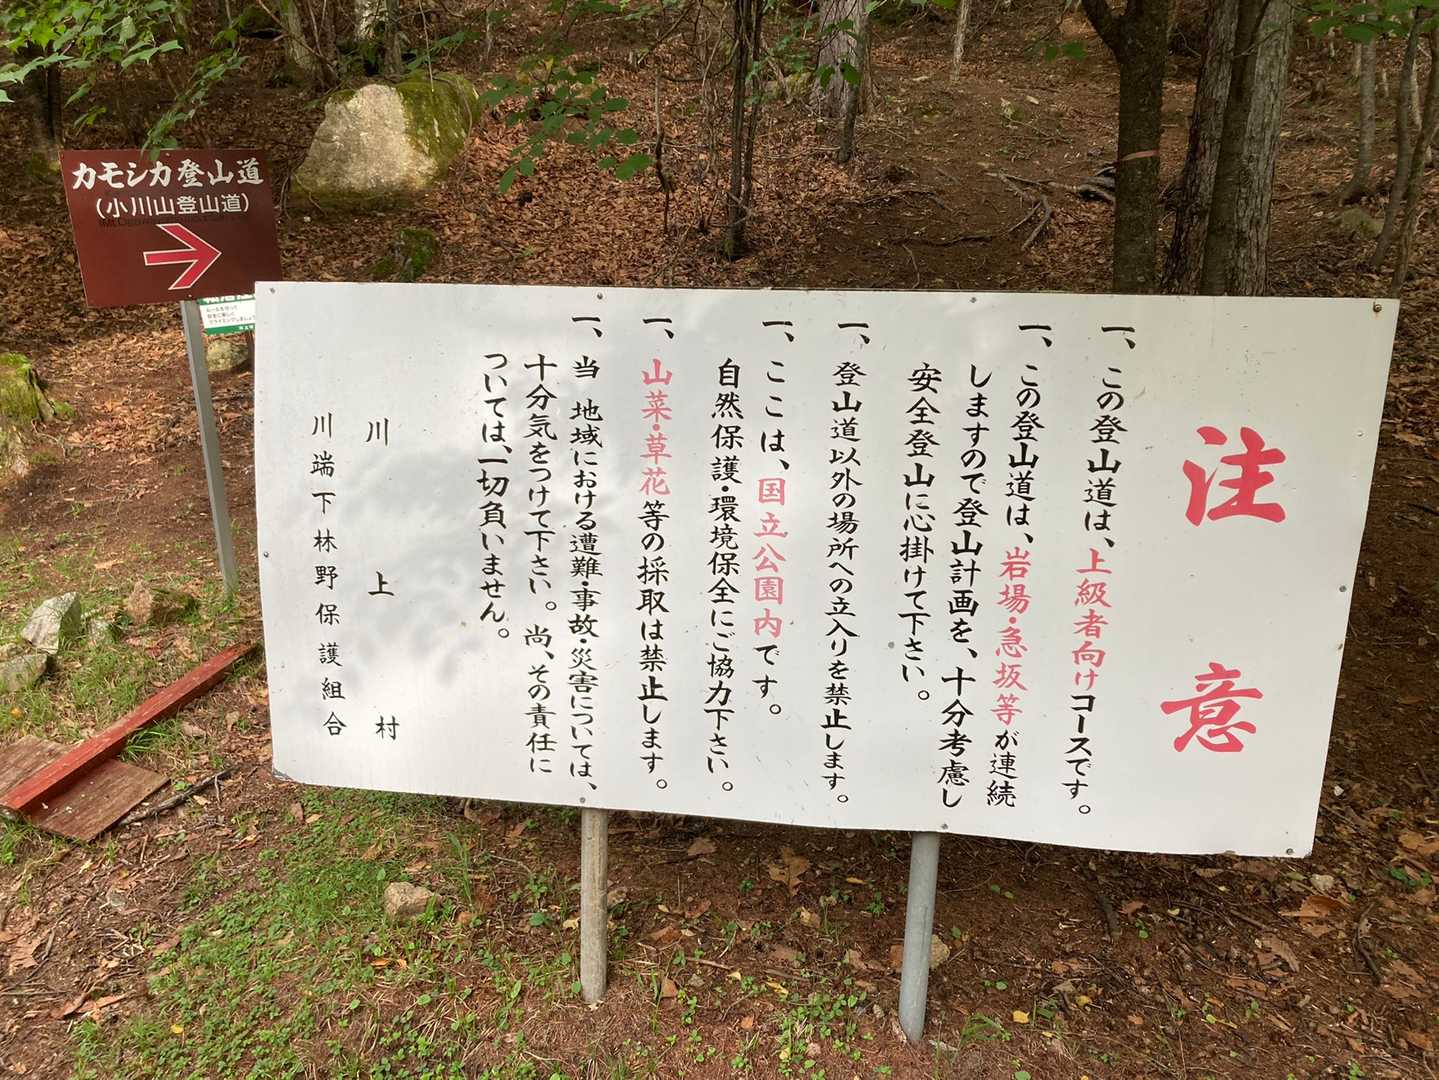 カモシカ登山道
(小川山登山道)
注意
一、この登山道は、上級者向けコースです。
一、この登山道は、岩場・急坂等が連続
しますので登山計画を、十分考慮し
安全登山に心掛けて下さい。
一、登山道以外の場所への立入りを禁止します。
一、ここは、国立公園内です。
自然保護・環境保全にご協力下さい。
一、山菜・草花等の採取は禁止します。
一、当地域における遭難・事故・災害については、
十分気をつけて下さい。尚、その責任に
ついては、一切負いません。
川上村
川端下林野保護組合